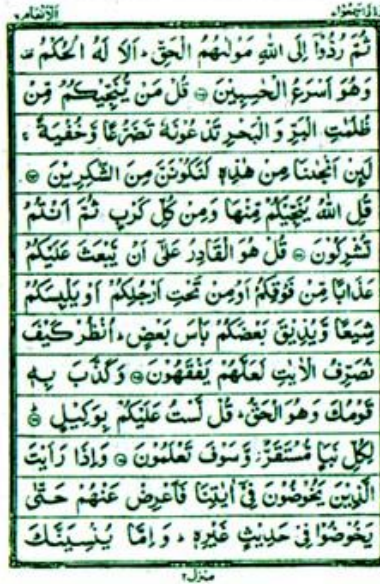 واذاسمعوا ٧ الانعام ٦
ثُمَّ رُدُّوْۤا اِلَى اللّٰهِ مَوْلٰىهُمُ الْحَقِّ ؕ اَلَا لَهُ الْحُكْمُ ۫
وَهُوَ اَسْرَعُ الْحٰسِبِيْنَ ۝ قُلْ مَنْ يُّنَجِّيْكُمْ مِّنْ
ظُلُمٰتِ الْبَرِّ وَ الْبَحْرِ تَدْعُوْنَهٗ تَضَرُّعًا وَّخُفْيَةً ۚ
لَىِٕنْ اَنْجٰىنَا مِنْ هٰذِهٖ لَنَكُوْنَنَّ مِنَ الشّٰكِرِيْنَ ۝
قُلِ اللّٰهُ يُنَجِّيْكُمْ مِّنْهَا وَمِنْ كُلِّ كَرْبٍ ثُمَّ اَنْتُمْ
تُشْرِكُوْنَ ۝ قُلْ هُوَ الْقَادِرُ عَلٰۤى اَنْ يَّبْعَثَ عَلَيْكُمْ
عَذَابًا مِّنْ فَوْقِكُمْ اَوْ مِنْ تَحْتِ اَرْجُلِكُمْ اَوْ يَلْبِسَكُمْ
شِيَعًا وَّيُذِيْقَ بَعْضَكُمْ بَاْسَ بَعْضٍ ؕ اُنْظُرْ كَيْفَ
نُصَرِّفُ الْاٰيٰتِ لَعَلَّهُمْ يَفْقَهُوْنَ ۝ وَكَذَّبَ بِهٖ
قَوْمُكَ وَهُوَ الْحَقُّ ؕ قُلْ لَّسْتُ عَلَيْكُمْ بِوَكِيْلٍ ۝
لِكُلِّ نَبَاٍ مُّسْتَقَرٌّ ؗ وَّسَوْفَ تَعْلَمُوْنَ ۝ وَاِذَا رَاَيْتَ
الَّذِيْنَ يَخُوْضُوْنَ فِيْۤ اٰيٰتِنَا فَاَعْرِضْ عَنْهُمْ حَتّٰى
يَخُوْضُوْا فِيْ حَدِيْثٍ غَيْرِهٖ ؕ وَ اِمَّا يُنْسِيَنَّكَ
منزل ٢